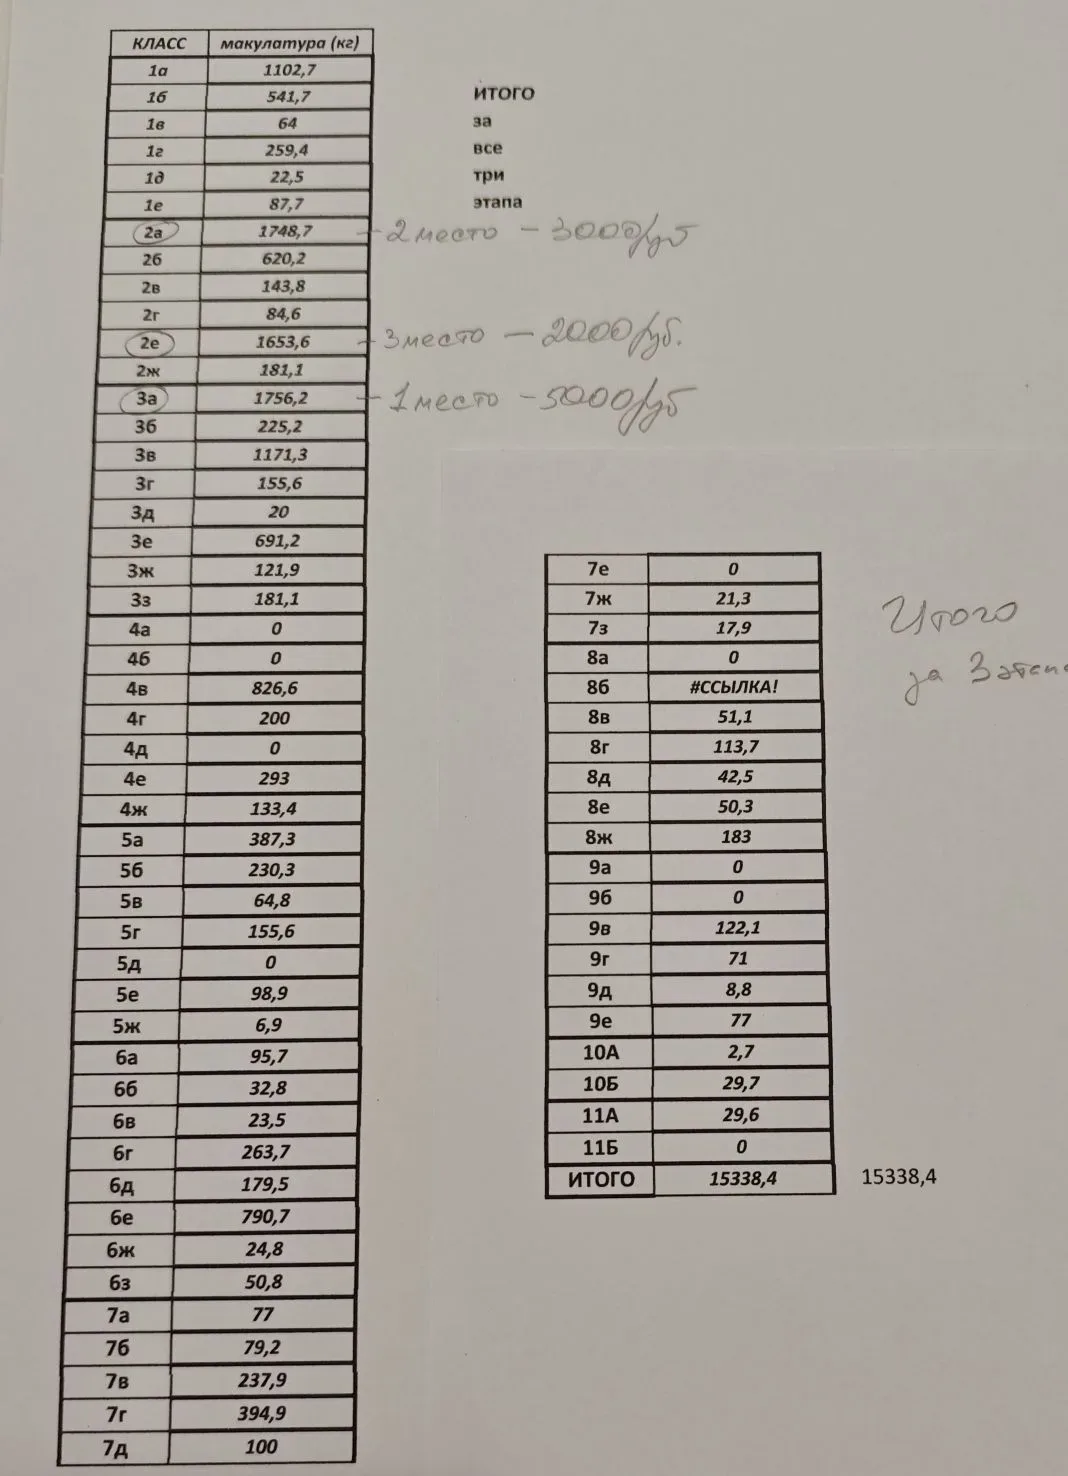 КЛАСС макулатура (кг)
1а 1102,7
1б 541,7
1в 64
1г 259,4
1д 22,5
1е 87,7
2а 1748,7 - 2 место - 3000 руб
2б 620,2
2в 143,8
2г 84,6
2е 1653,6 - 3 место - 2000 руб.
2ж 181,1
3а 1756,2 - 1 место - 5000 руб
3б 225,2
3в 1171,3
3г 155,6
3д 20
3е 691,2
3ж 121,9
3з 181,1
4а 0
4б 0
4в 826,6
4г 200
4д 0
4е 293
4ж 133,4
5а 387,3
5б 230,3
5в 64,8
5г 155,6
5д 0
5е 98,9
5ж 6,9
6а 95,7
6б 32,8
6в 23,5
6г 263,7
6д 179,5
6е 790,7
6ж 24,8
6з 50,8
7а 77
7б 79,2
7в 237,9
7г 394,9
7д 100
ИТОГО
за
все
три
этапа
7е 0
7ж 21,3
7з 17,9
8а 0
8б #ССЫЛКА!
8в 51,1
8г 113,7
8д 42,5
8е 50,3
8ж 183
9а 0
9б 0
9в 122,1
9г 71
9д 8,8
9е 77
10А 2,7
10Б 29,7
11А 29,6
11Б 0
ИТОГО 15338,4 15338,4
Итого
за 3 этапа